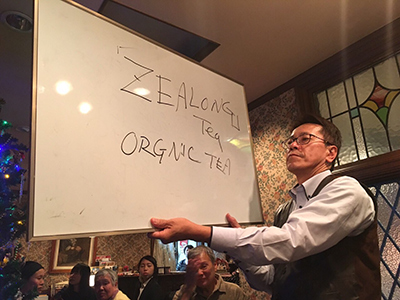 ZEALONG
Tea
ORGNIC TEA